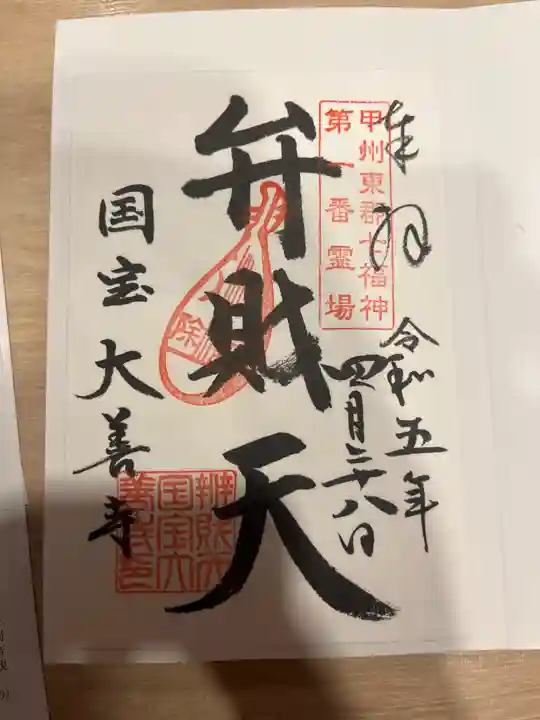 奉拝
令和五年
四月二十八日
甲州東郡七福神
第一番霊場
弁財天
除
国宝大善寺